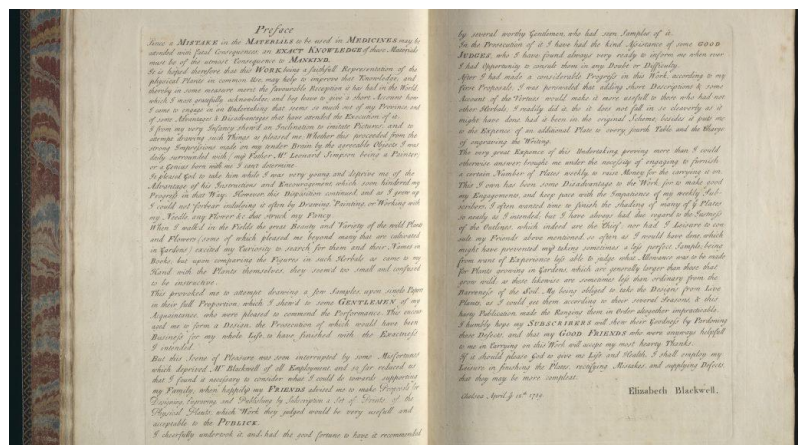 Preface
Since a MISTAKE in the MATERIALS to be used in MEDICINES may be
attended with fatal Consequences an EXACT KNOWLEDGE of those Materials
must be of the utmost Consequence to MANKIND.
It is hoped therefore that this WORK being a faithfull Representation of the
physical Plants in common Use, may help to improve that Knowledge, and
thereby in some measure merit the favourable Reception it has had in the World
which I most gratefully acknowledge, and beg leave to give a short Account how
I came to engage in an Undertaking that seems so much out of my Province and
of some Advantages & Disadvantages that have attended the Execution of it.
I from my very Infancy shew'd an Inclination to imitate Pictures, and to
attempt drawing such Things as pleased me: Whether this proceeded from the
strong Impressions made on my tender Brain by the agreeable Objects I was
daily surrounded with, my Father Mr. Leonard Simpson being a Painter,
or a Genius born with me I can't determine.
It pleased God to take him while I was very young and deprive me of the
Advantage of his Instructions and Encouragement, which soon hindered my
Progress in that Way. However this Disposition continued, and as I grew up
I could not forbear indulging it often by Drawing, Painting, or Working with
my Needle, any Flower &c. that struck my Fancy.
When I walk'd in the Fields the great Beauty and Variety of the wild Plants
and Flowers (some of which pleased me beyond many that are cultivated
in Gardens) excited my Curiosity to search for them and their Names in
Books, but upon comparing the Figures in such Herbals as came to my
Hand with the Plants themselves, they seem'd too small and confused
to be instructive.
This provoked me to attempt drawing a few Samples upon single Paper
in their full Proportion, which I shew'd to some GENTLEMEN of my
Acquaintance, who were pleased to commend the Performance. This encou
raged me to form a Design, the Prosecution of which would have been
Business for my whole Life, to have finished with the Exactness
I intended.
But this Scene of Pleasure was soon interrupted by some Misfortunes
which deprived Mr. Blackwell of all Employment, and so far reduced us
that I found it necessary to consider what I could do towards supporting
my Family, when happily my FRIENDS advised me to make Proposals for
Designing, Engraving, and Publishing by Subscription a Set of Prints of the
Physical Plants, which Work they judged would be very usefull and
acceptable to the PUBLICK.
I chearfully undertook it, and had the good fortune to have it recommended
by several worthy Gentlemen, who had seen Samples of it.
In the Prosecution of it I have had the kind Assistance of some GOOD
JUDGES, who I have found always very ready to inform me when ever
I had Opportunity to consult them in any Doubt or Difficulty.
After I had made a considerable Progress in this Work, according to my
first Proposals, I was persuaded that adding short Descriptions & some
Account of the Virtues would make it more usefull to those who had not
other Herbals; I readily did it tho' it does not fall in so clearly as it
might have done, had it been in the original Scheme, besides it puts me
to the Expence of an additional Plate to every fourth Table and the Charge
of engraving the Writing.
The very great Expence of this Undertaking proving more than I could
otherwise answer brought me under the necessity of engaging to furnish
a certain Number of Plates weekly, to raise Money for the carrying it on.
This I own has been some Disadvantage to the Work, for to make good
my Engagement, and keep pace with the Impatience of my weekly Sub
scribers, I often wanted time to finish the shading of many of ye. Plates
so neatly as I intended; but I have always had due regard to the Justness
of the Outlines, which indeed are the Chief; nor had I Leisure to con
sult my Friends above mentioned so often as I would have done, which
might have prevented my taking sometimes a less perfect Sample, being
from want of Experience less able to judge what Allowance was to be made
for Plants growing in Gardens, which are generally larger than those that
grow wild, as these likewise are sometimes less than ordinary from the
Barrenness of the Soil. My being obliged to take the Designs from Live
Plants, as I could get them according to their several Seasons, & this
hasty Publication made the Ranging them in Order altogether impracticable.
I humbly hope my SUBSCRIBERS will shew their Goodness by Pardoning
these Defects, and that my GOOD FRIENDS who were anyways helpfull
to me in Carrying on this Work will accept my most hearty Thanks.
If it should please God to give me Life and Health, I shall employ my
Leisure in finishing the Plates, rectifying Mistakes, and supplying Defects,
that they may be more compleat.
Elizabeth Blackwell.
Chelsea April ye